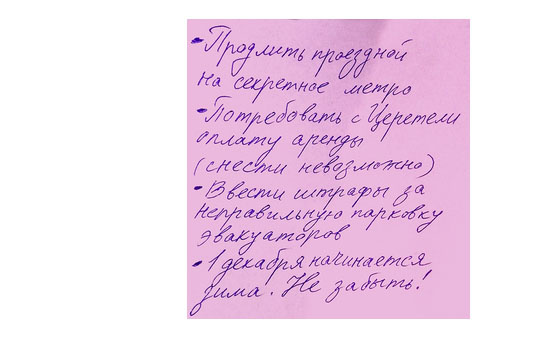 - Продлить проездной
на секретное метро
- Потребовать с Церетели
оплату аренды
(снести невозможно)
- Ввести штрафы за
неправильную парковку
эвакуаторов
- 1 декабря начинается
зима. Не забыть!